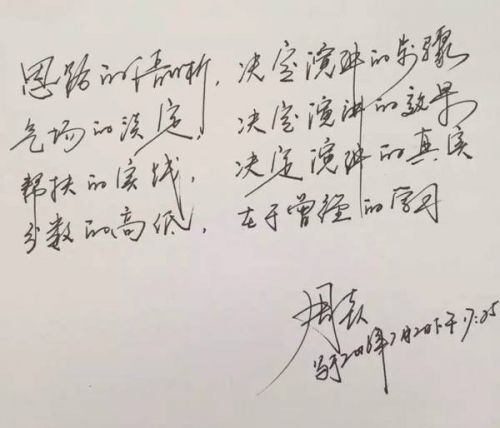 思路的清晰，决定演讲的步骤
气场的淡定，决定演讲的效果
帮扶的实战，决定演讲的真实
分数的高低，在于曾经的学习
周
写于2016年7月2日下午17:25